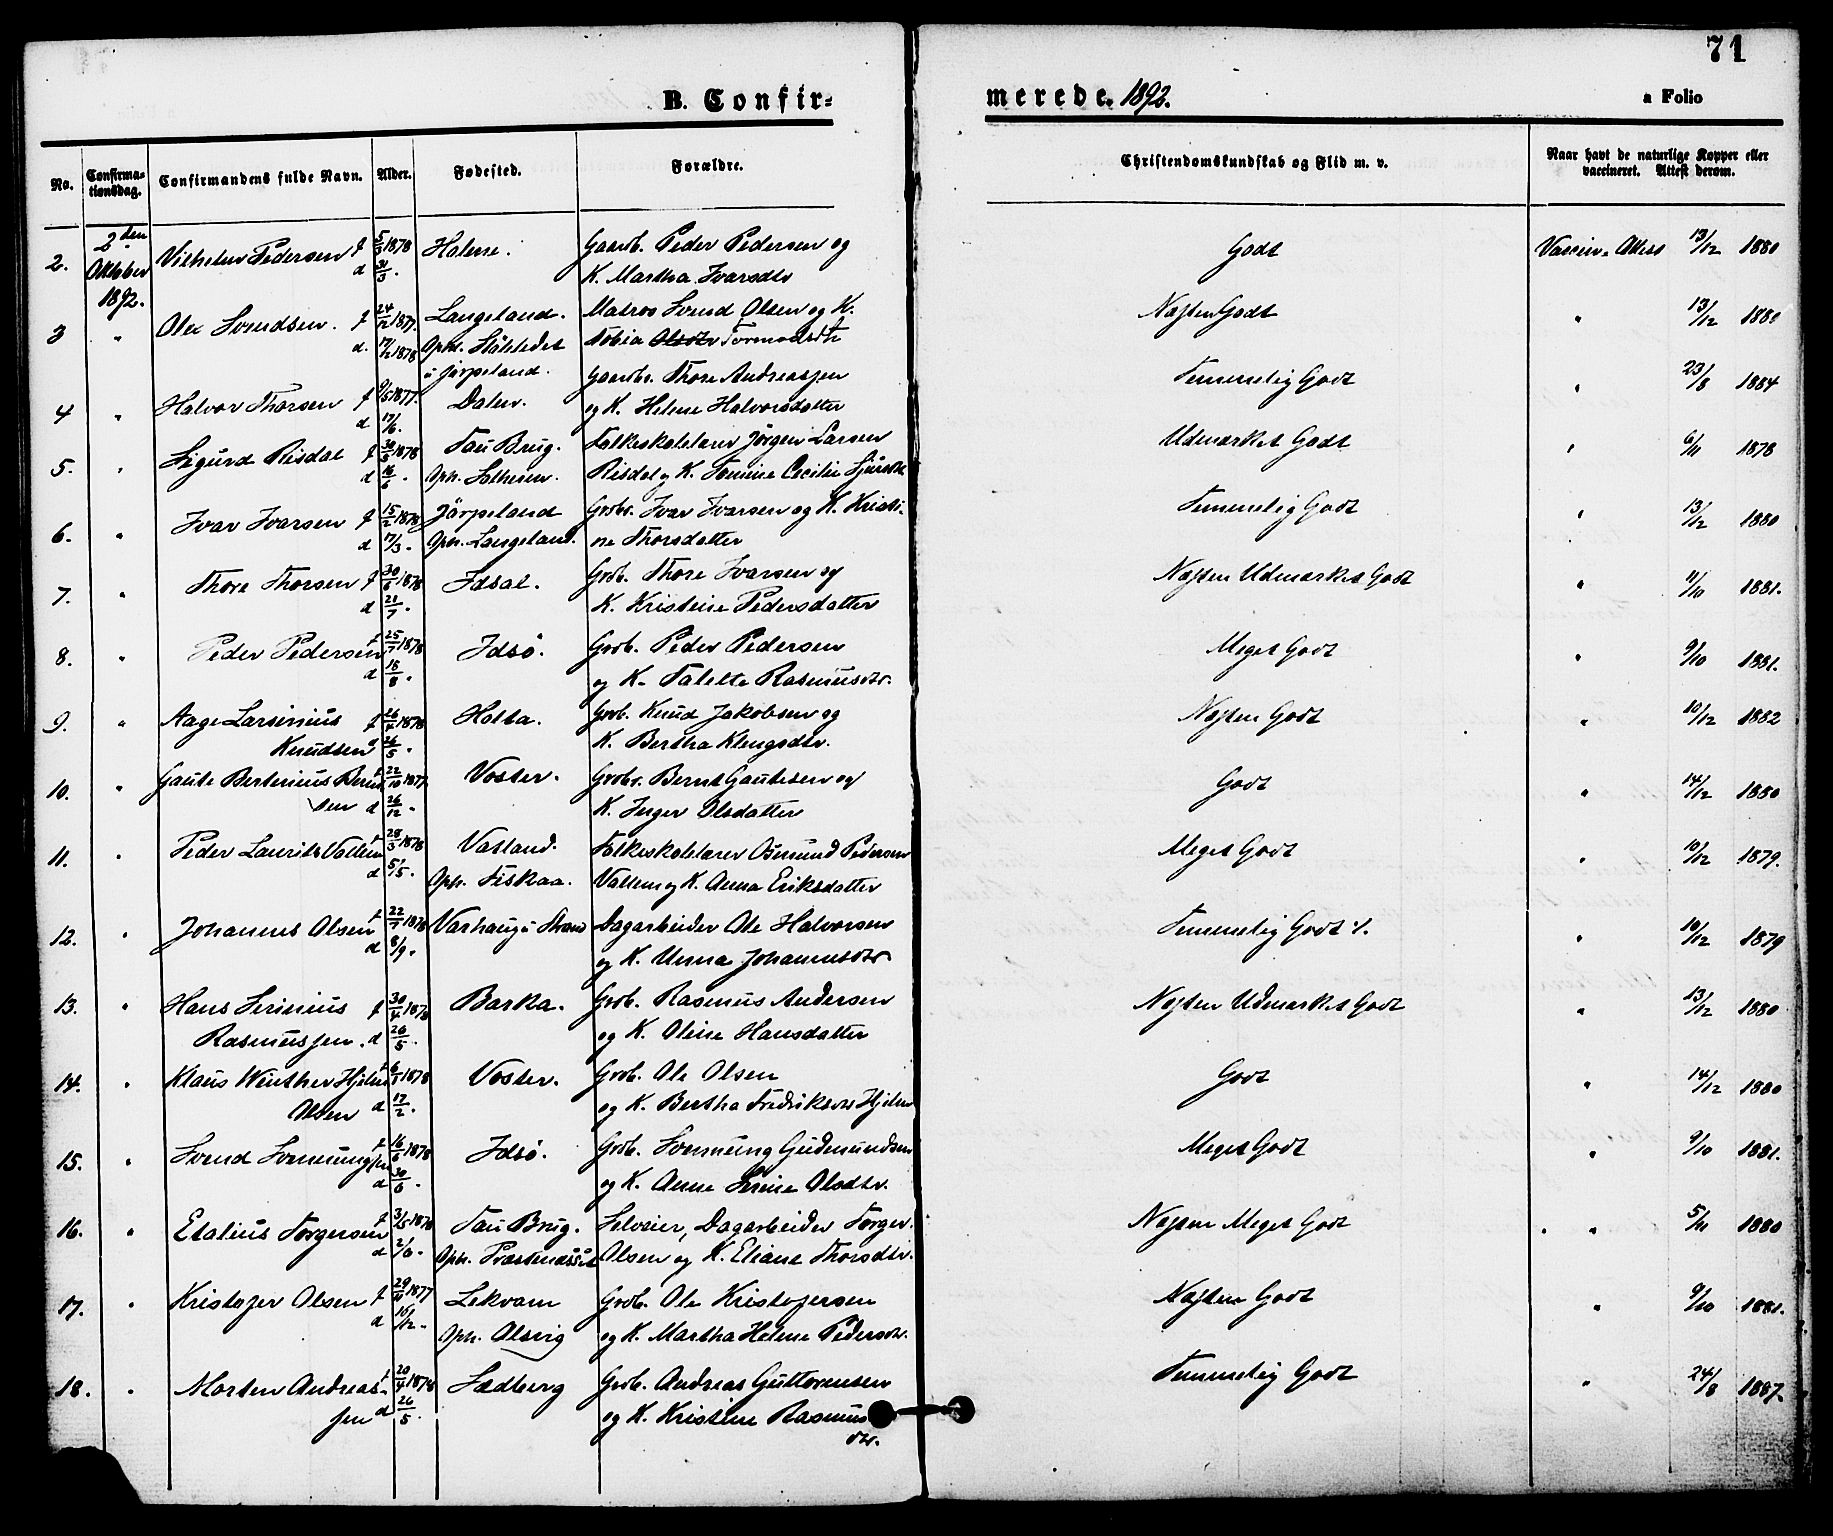 71
B. Confir=
merede. 1892.
a Folio
No.
Confirma-
tionsdag.
Confirmandens fulde Navn.
Alder.
Fødested.
Forældre.
Christendomskundskab og Flid m. v.
Naar havt de naturlige Kopper eller
vaccineret. Attest derom.
2. 2den Oktober 1892. Vilhelm Pedersen f 5/3 1878 d 31/3. Holene. Gaardb. Peder Pedersen og
K. Martha Ivarsdtr
Godt Vaccin. Attest 13/12 1880
3 " Ole Svendsen. f 24/12 1877. d. 17/2 1878 Langeland. Matros Svend Olsen og K.
Oph. Stølstedet i Jørpeland. Tobia Olsdtr Tormodsdtr
Næsten Godt " 13/12 1880
4 " Halvor Thorsen f 9/5 1877. d 17/6. Dalen. Gaardbr. Thore Andreassen
og K. Helene Halvorsdatter
Temmelig Godt " 23/8 1884
5. " Sigurd Risdal f 30/5 1878 d 16/6. Tau Brug. Folkeskolelærer Jørgen Larsen
Oph. Solheim. Risdal og K. Tomine Cecilie Sjursdtr
Udmærket Godt " 6/11 1878
6. " Ivar Ivarsen f 15/2 1878 d 17/3. Jørpeland Grdbr. Ivar Ivarsen og K. Kristi-
Oph. Langeland. ne Thorsdatter
Temmelig Godt " 13/12 1880
7. " Thore Thorsen f 30/6 1878 d 21/7. Idsal. Grdb. Thore Ivarsen og
K. Kristine Pedersdatter
Næsten Udmærket Godt " 11/10 1881.
8. " Peder Pedersen f 25/7 1878 d 18/8. Idsø. Grdb. Peder Pedersen
og K. Talette Rasmusdtr.
Meget Godt " 9/10 1881.
9. " Aage Larsinius f 26/4 1878
Knudsen d 26/5. Holta. Grdb. Knud Jakobsen og
K. Bertha Klengsdtr.
Næsten Godt " 10/12 1882
10. " Gaute Bertinius Bernt- f 22/10 1877
sen d 26/12. Voster. Grdbr. Bernt Gautesen og
K. Inger Olsdatter
Godt " 14/12 1880
11. " Peder Laurits Vallem f 28/3 1878 d 5/5. Vatland. Folkeskolelærer Osmund Pedersen
Oph. Fiskaa. Vallem og K. Anna Eriksdatter
Meget Godt " 10/12 1879.
12. " Johannes Olsen f 22/7 1878 d 8/9. Varhaug i Strand Dagarbeider Ole Halvorsen
og K. Unna Johannesdtr
Temmelig Godt " 10/12 1879
13. " Hans Serinius f 30/4 1878
Rasmussen. d 26/5. Barka. Grdb. Rasmus Andersen
og K. Oline Hansdatter
Næsten Udmærket Godt " 13/12 1880
14. " Klaus Winther Hjelm f 6/1 1878
Olsen d 17/2. Voster. Grdb. Ole Olsen
og K. Bertha Fredriksdtr Hjelm
Godt " 14/12 1880
15. " Svend Svenningsen f 16/6 1878 d 30/6. Idsø. Grdb. Svennung Gudmundsen
og K. Anne Serine Olsdtr.
Meget Godt " 9/10 1881.
16. " Etalius Torgersen f 3/5 1878 d 2/6. Tau Brug. Selveier, Dagarbeider Torger
Oph. Præstenæsset Olsen og K. Eliane Thorsdtr.
Næsten Meget Godt " 5/11 1880
17. " Kristofer Olsen f 29/11 1877 d 16/12. Lekvam Grdb. Ole Kristofersen
Oph. Alsvig og K. Martha Helene Pedersdtr.
Næsten Godt " 9/10 1881.
18. " Morten Andreas- f 20/4 1878
sen d 26/5. Sædberg Grdb. Andreas Guttormsen
og K. Kristine Rasmus
dtr.
Temmelig Godt " 24/8 1887.